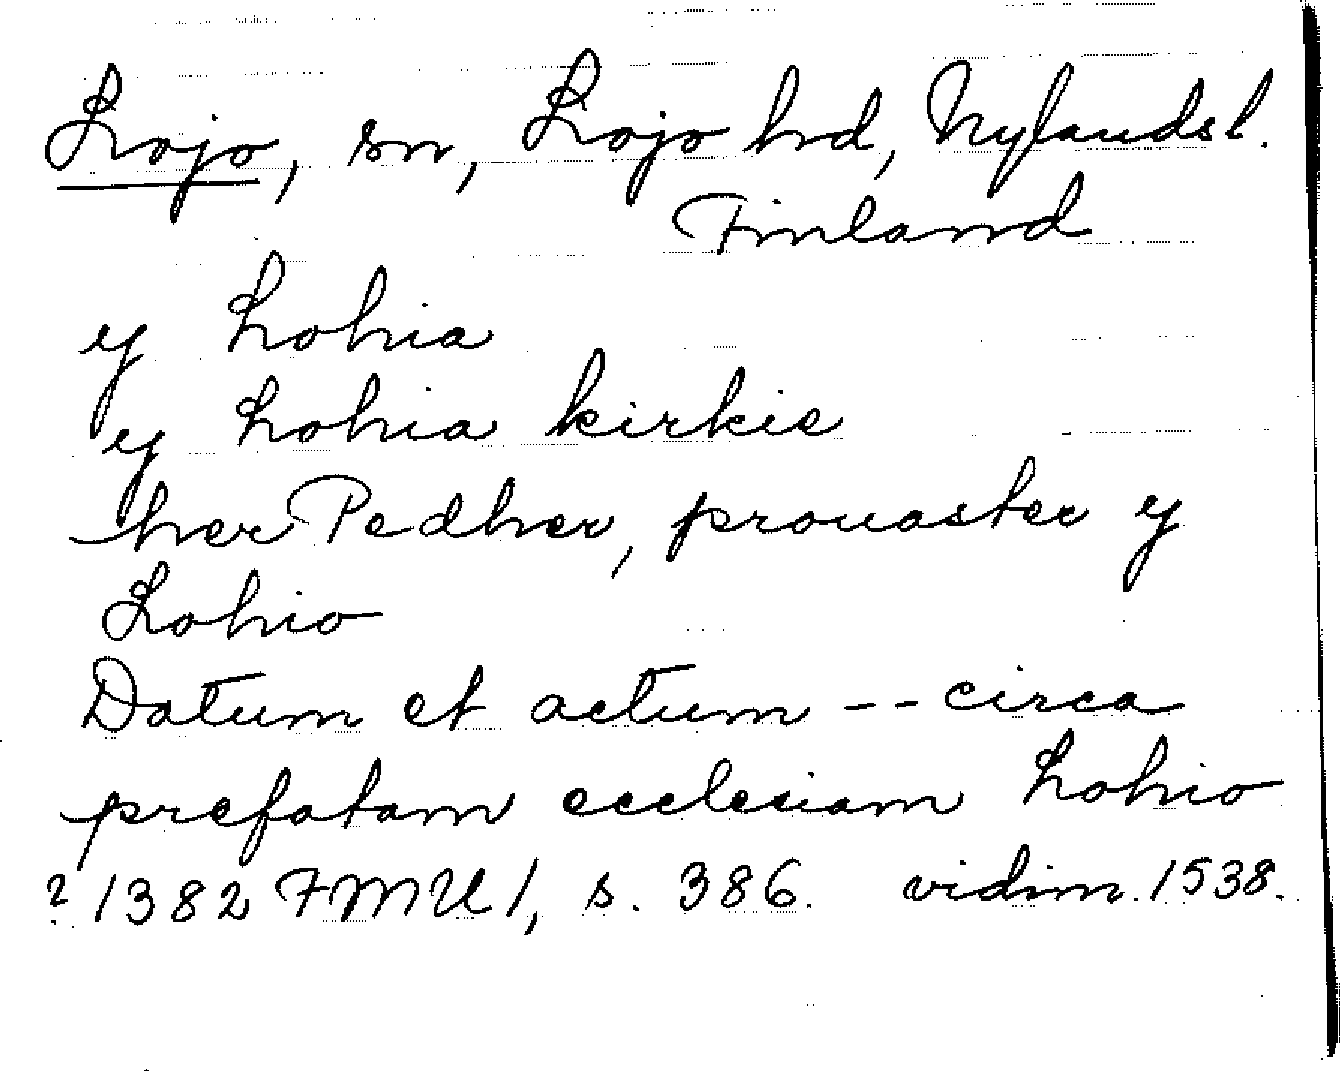 Lojo, sn, Lojo hrd, Nylands l.
Finland
y Lohia
y Lohia kirkie
her Pedher, prouaster y
Lohio
Datum et actum -- circa
prefatam ecclesiam Lohio
? 1382 FMU 1, s. 386. vidim. 1538.